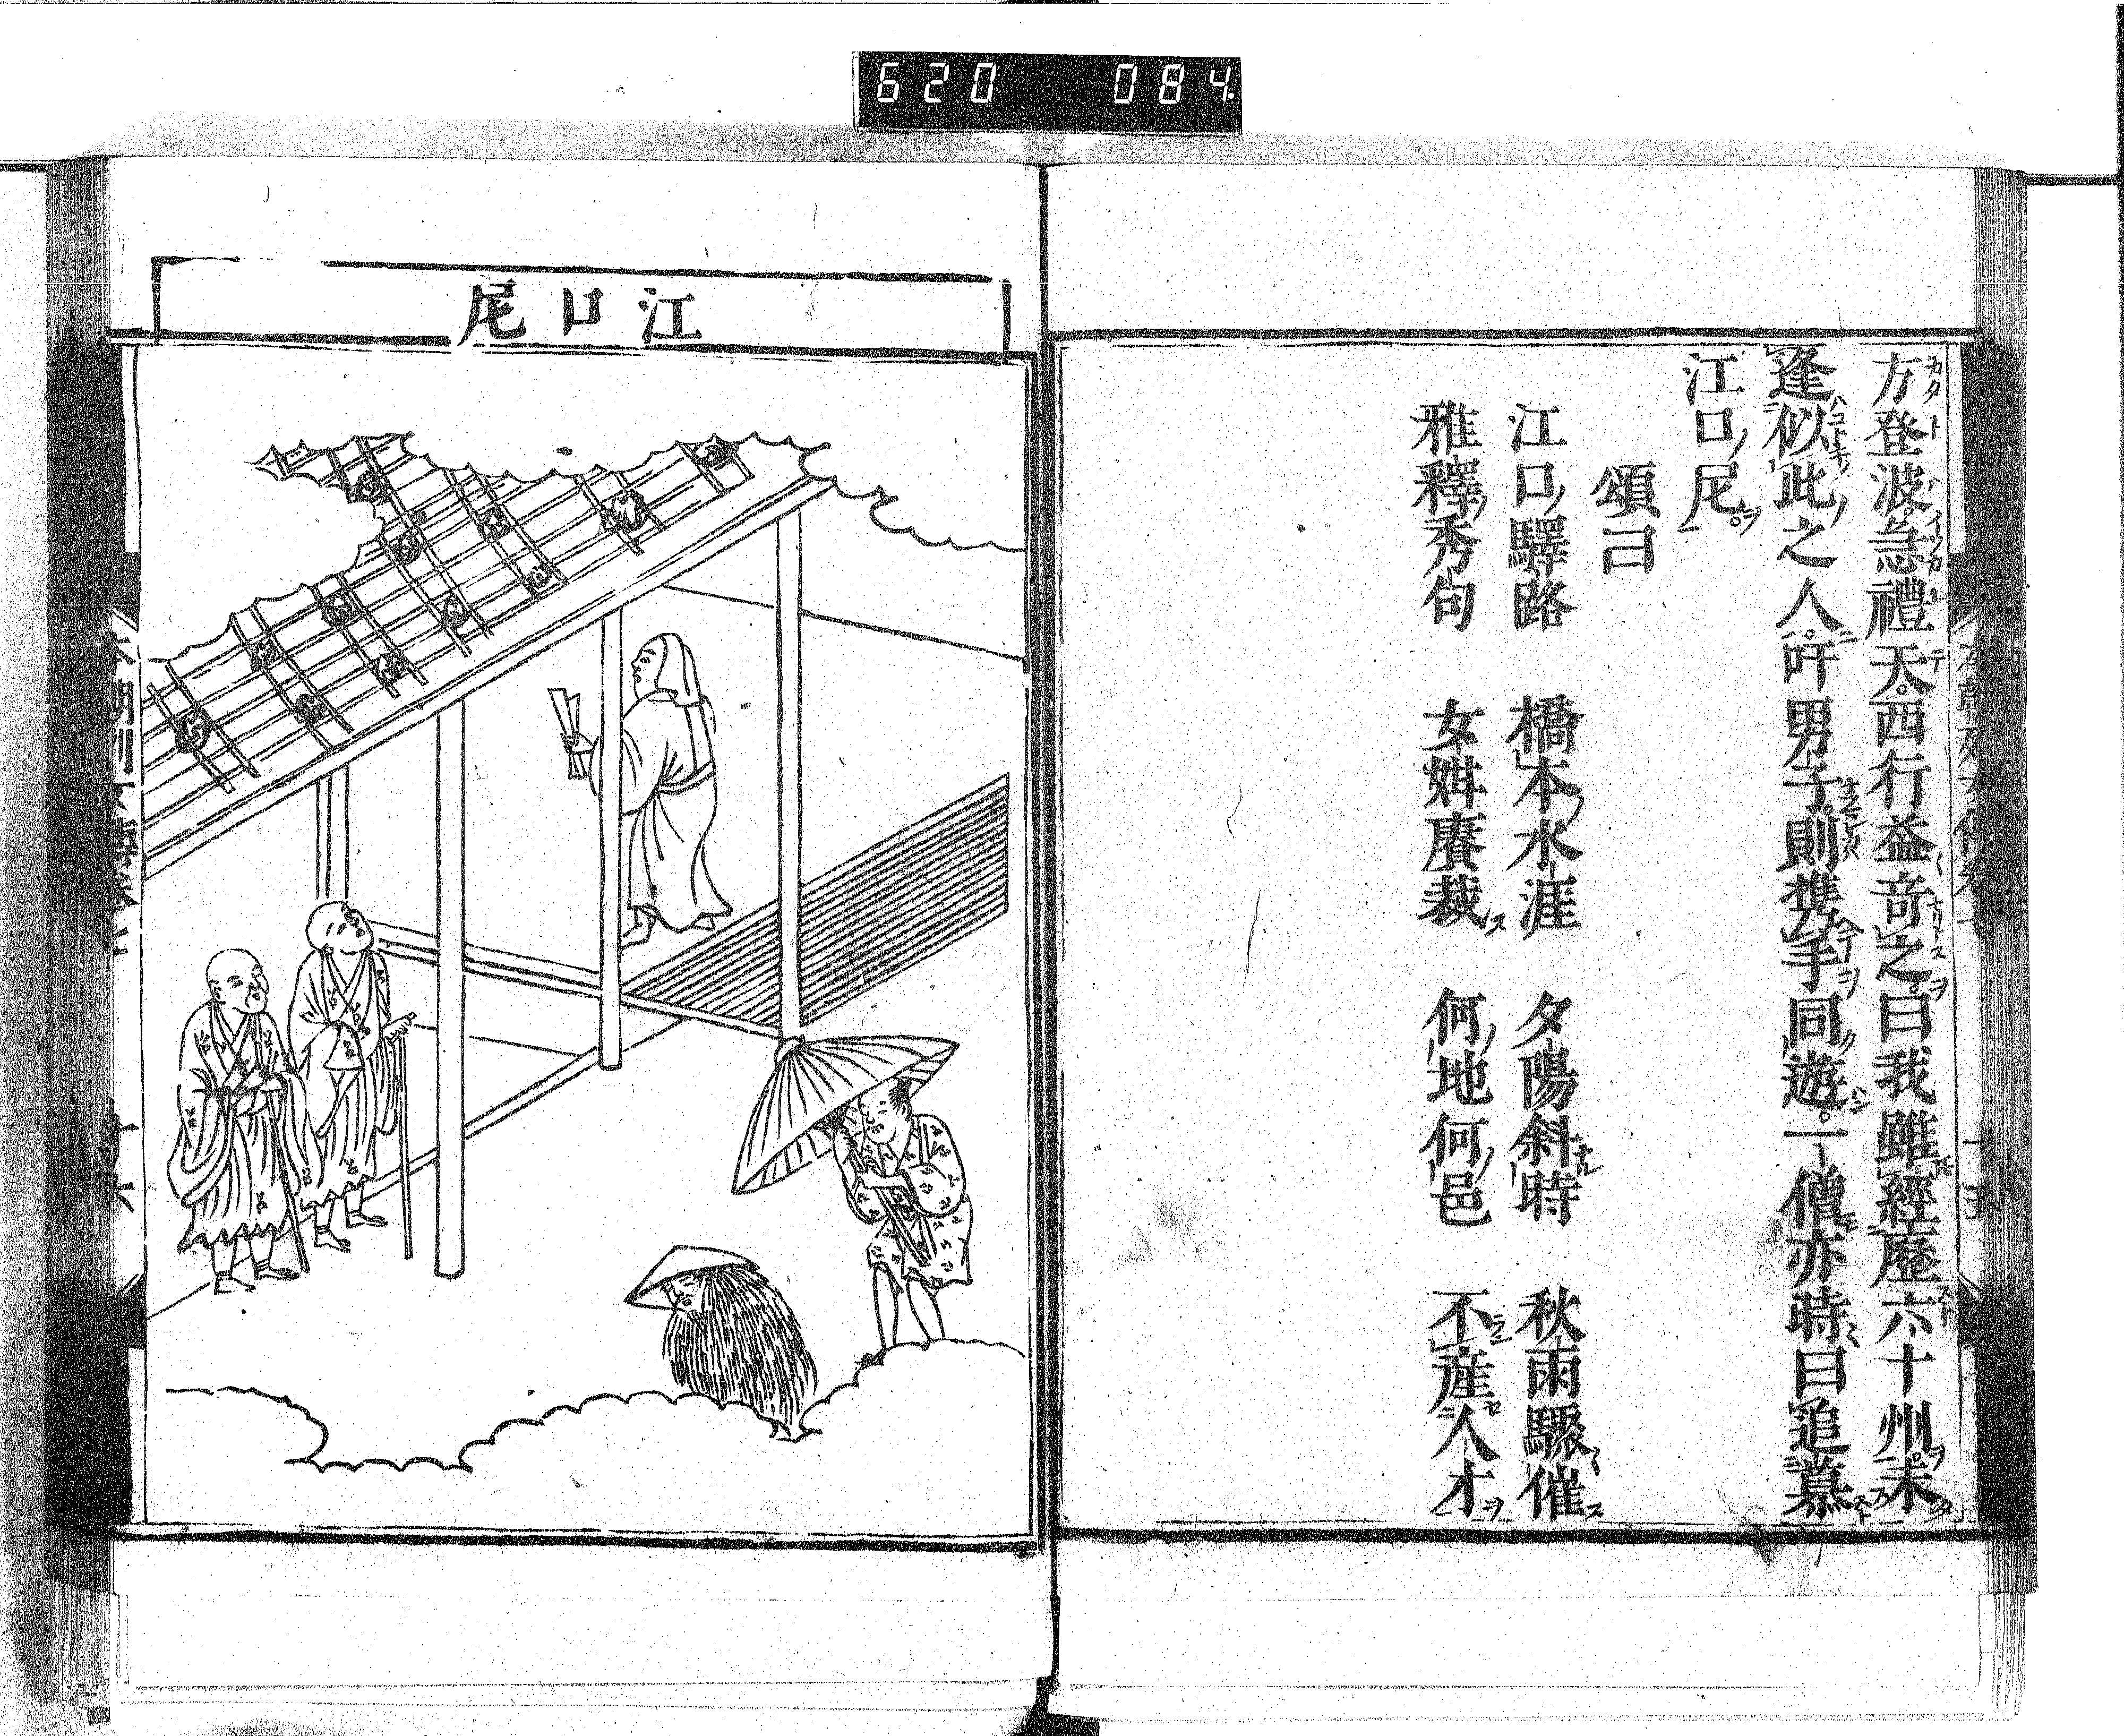 620 084
方登波急禮天。西行益竒之。曰我雖經歷六十州。未
逢似此之人。吁男子。則携手同遊。一僧亦時曰追慕
江口尼。
頌曰
江口驛路 橋本水涯 夕陽斜時 秋雨驟催
雅釋秀句 女賡裁 何地何邑 不産人才
江口尼